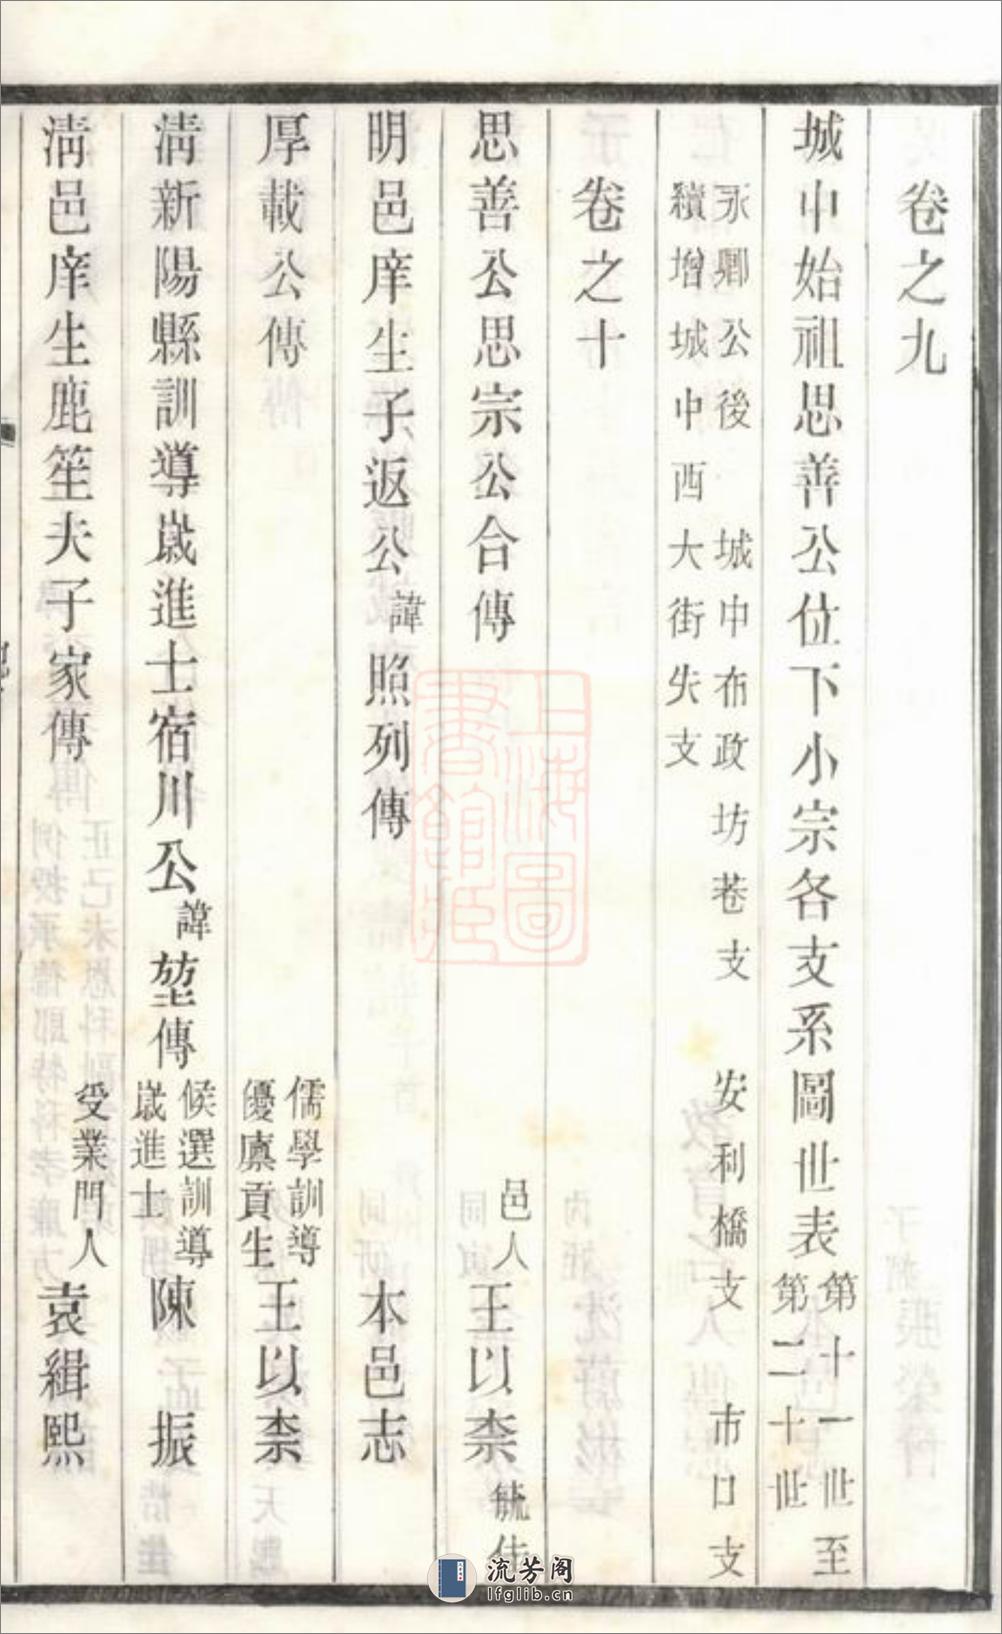 卷之九
城中始祖思善公位下小宗各支系圖世表 第十一世至 第二十世
永卿公後 城中布政坊巷支 安利橋支 市口支
續增城中西大街失支
卷之十
思善公思宗公合傳 邑人 王以柰 毓佳
明邑庠生子返公諱照列傳 本邑志
厚載公傳 儒學訓導 優廩貢生 王以柰
淸新陽縣訓導歲進士宿川公諱堃傳 候選訓導 歲進士 陳振
淸邑庠生鹿笙夫子家傳 受業門人 袁緝熙
上海圖書館藏
流芳阁
lfglib.cn